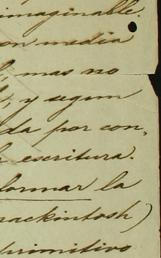 imaginable.
con media
l, mas no
y segun
da por con-
escritura.
formar la
mackintosh)
primitivo